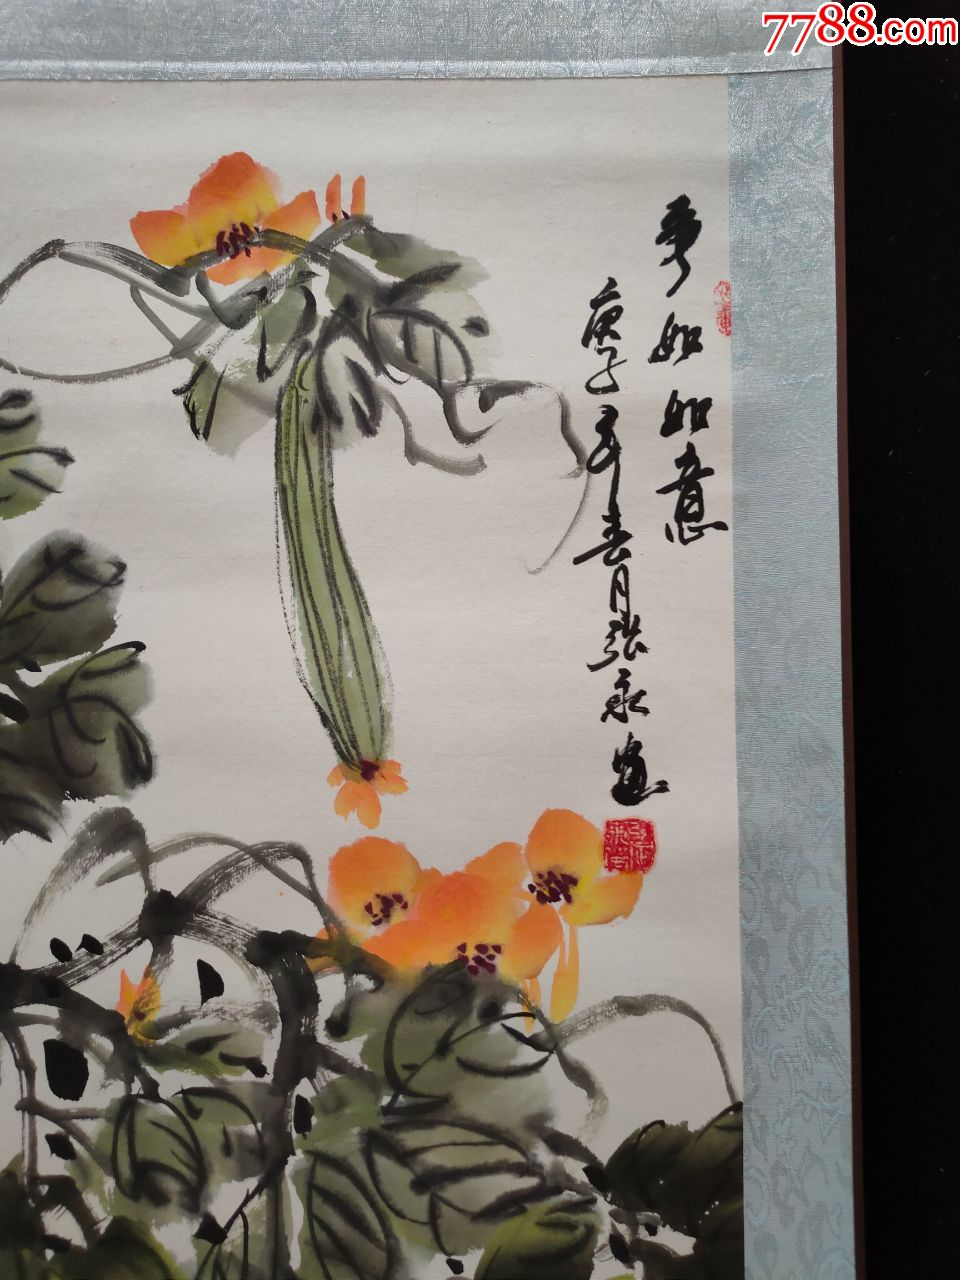 7788.com
事如如意
庚子年春月张永画